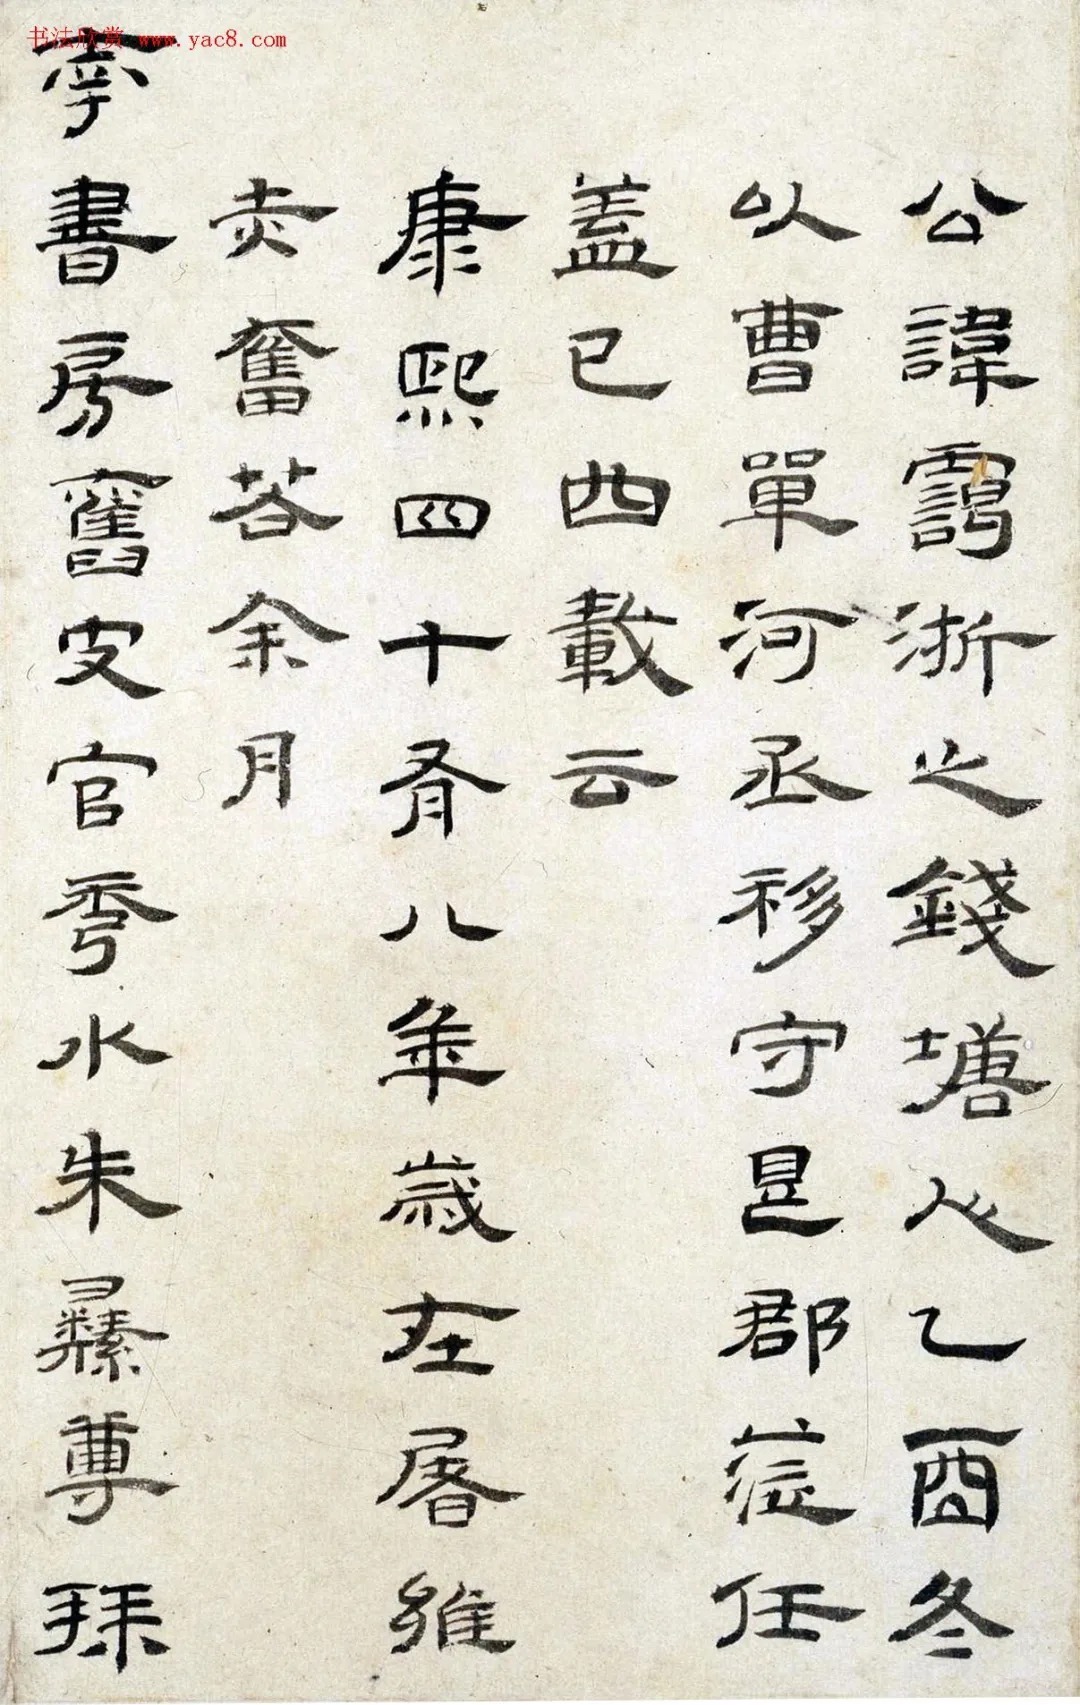 书法欣赏 www.yac8.com
公諱浙之錢塘人乙酉冬
以曹單河丞移守是郡蒞任
蓋已四載云
康熙四十有八年歲在屠維
赤奮若余月
南書房舊史官秀水朱彝尊拜